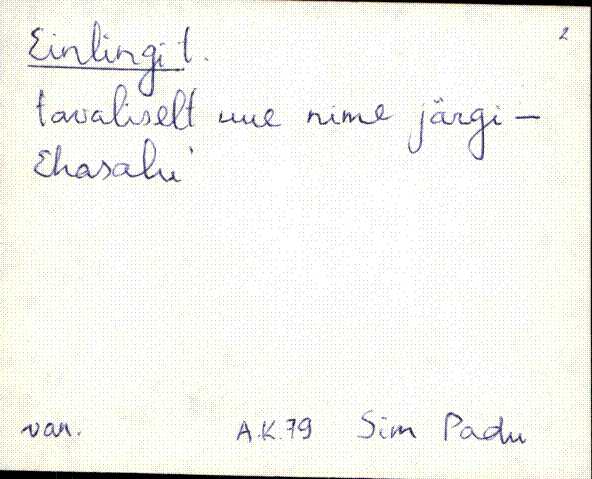 2
Einlingi t.
tavaliselt uue nime järgi –
Ehasalu'
van. A.K.79 Sim Padu